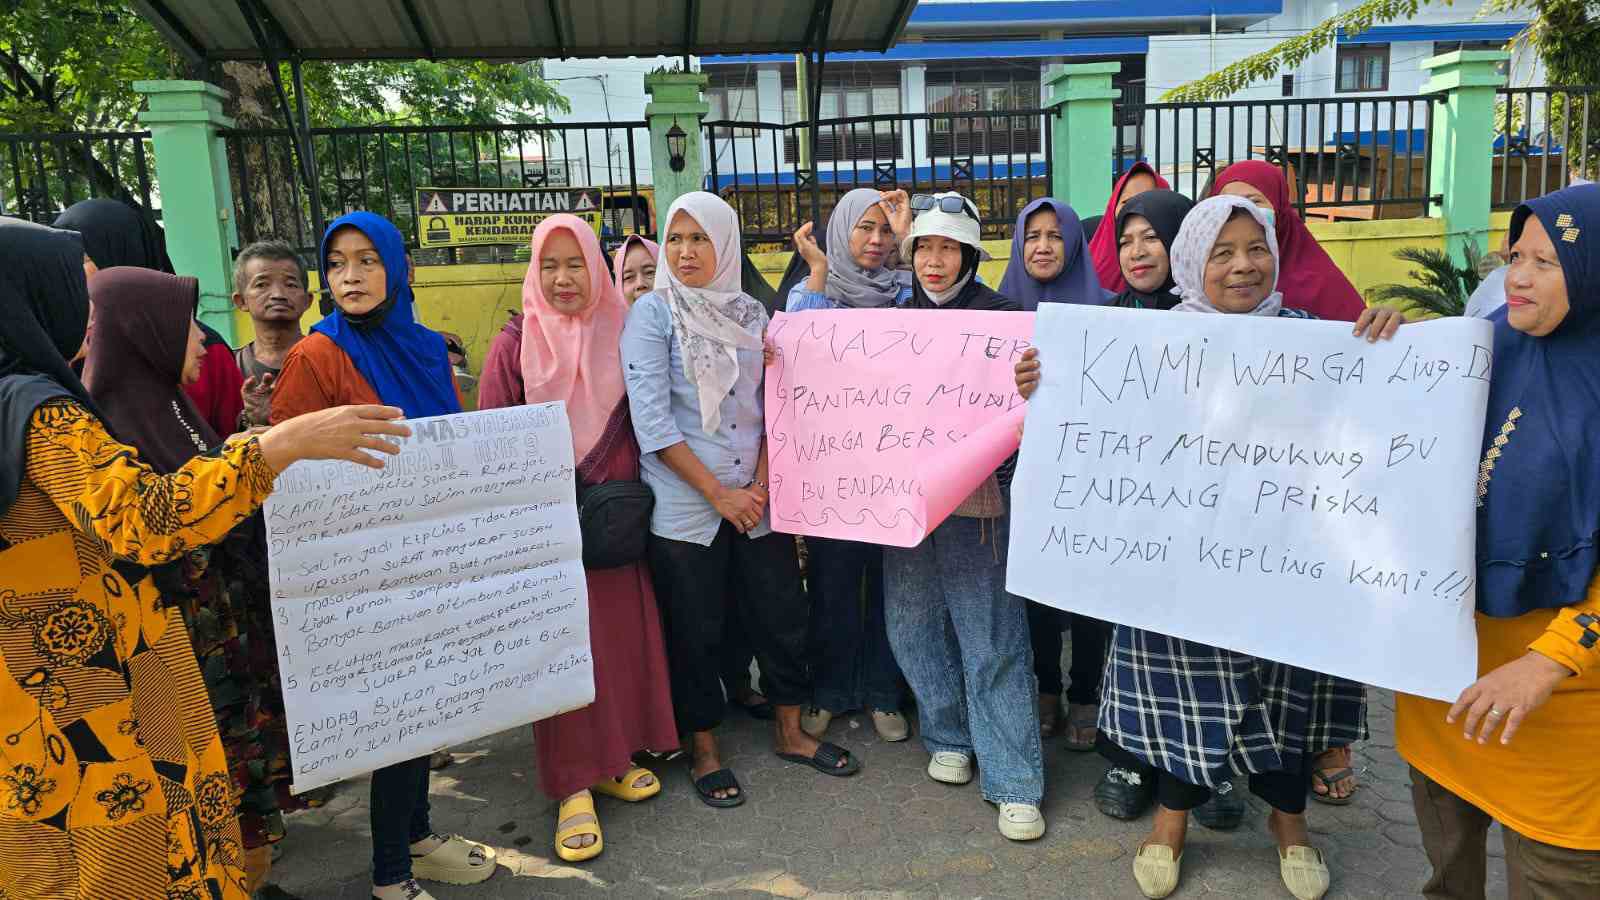 PERHATIAN
HARAP KUNCI
KENDARAAN
MASYARAKAT
JLN. PERWIRA. II
KAMI MEWAKILI SUARA RAKYAT
KAMI TIDAK MAU SALIM MENJADI KPLING
DIKARNAKAN
1. SALIM JADI KEPLING TIDAK AMANAH
2. URUSAN SURAT MENYURAT SUSAH
3 MASALAH BANTUAN BUAT MASYARAKAT
TIDAK PERNAH SAMPAY KE MASYARAKAT
4 BANYAK BANTUAN DITIMBUN DI RUMAH
5 KELUHAN MASYARAKAT TIDAK PERNAH DI
DENGAR SELAMA DIA MENJADI KEPLING KAMI
SUARA RAKYAT BUAT BUK
ENDAG BUKAN SALIM
KAMI MAU BUK ENDANG MENJADI KPLING
KAMI DI JLN PERWIRA II
MAJU TER
PANTANG MUND
WARGA BER
BU ENDANG
KAMI WARGA LING.
TETAP MENDUKUNG BU
ENDANG PRISKA
MENJADI KEPLING KAMI!!!